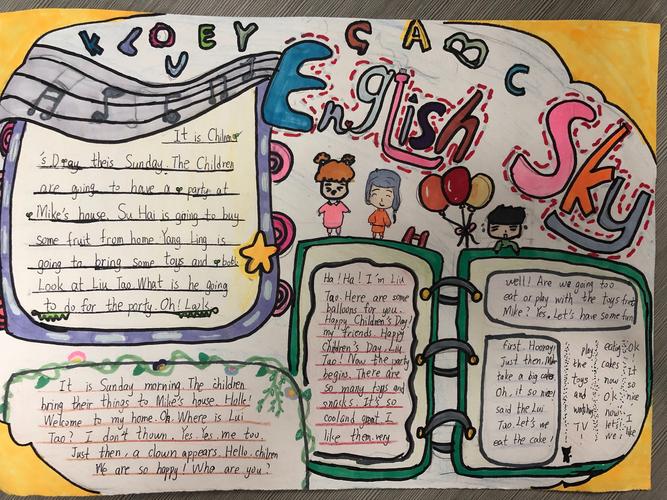 K L O U E Y C A B C
English
Sky
It is Children
's Day theis Sunday. The Children
are going to have a party at
Mike's house. Su Hai is going to buy
some fruit from home Yang Ling is
going to bring some toys and
Look at Liu Tao What is he going
to do for the party. Oh! Look
It is Sunday morning. The children
bring their things to Mike's house. Hallo!
Welcome to my home. Oh. Where is Lui
Tao? I don't thown. Yes Yes, me too.
Just then, a clown appears. Hello. chilren
We are so happy! Who are you?
Ha! Ha! I'm Liu
Tao. Here are some
balloons for you.
Happy Children's Day!
my friends. Happy
Children's Day. Liu
Tao! Now the party
begins. There are
so many toys and
snacks. It's so
cooland great I
like them very
well! Are we going too
eat or play with the Toys first
Mike? Yes. Let's have some
first. Hooray!
Just then,
take a big cake
Oh, it so nice!
said the Lui
Tao. Let's we
eat the cake!
play
the
Toys
and
TV
eating
cakes
now
Ok
now
let's
we
Ok
It
so
nice
I
like